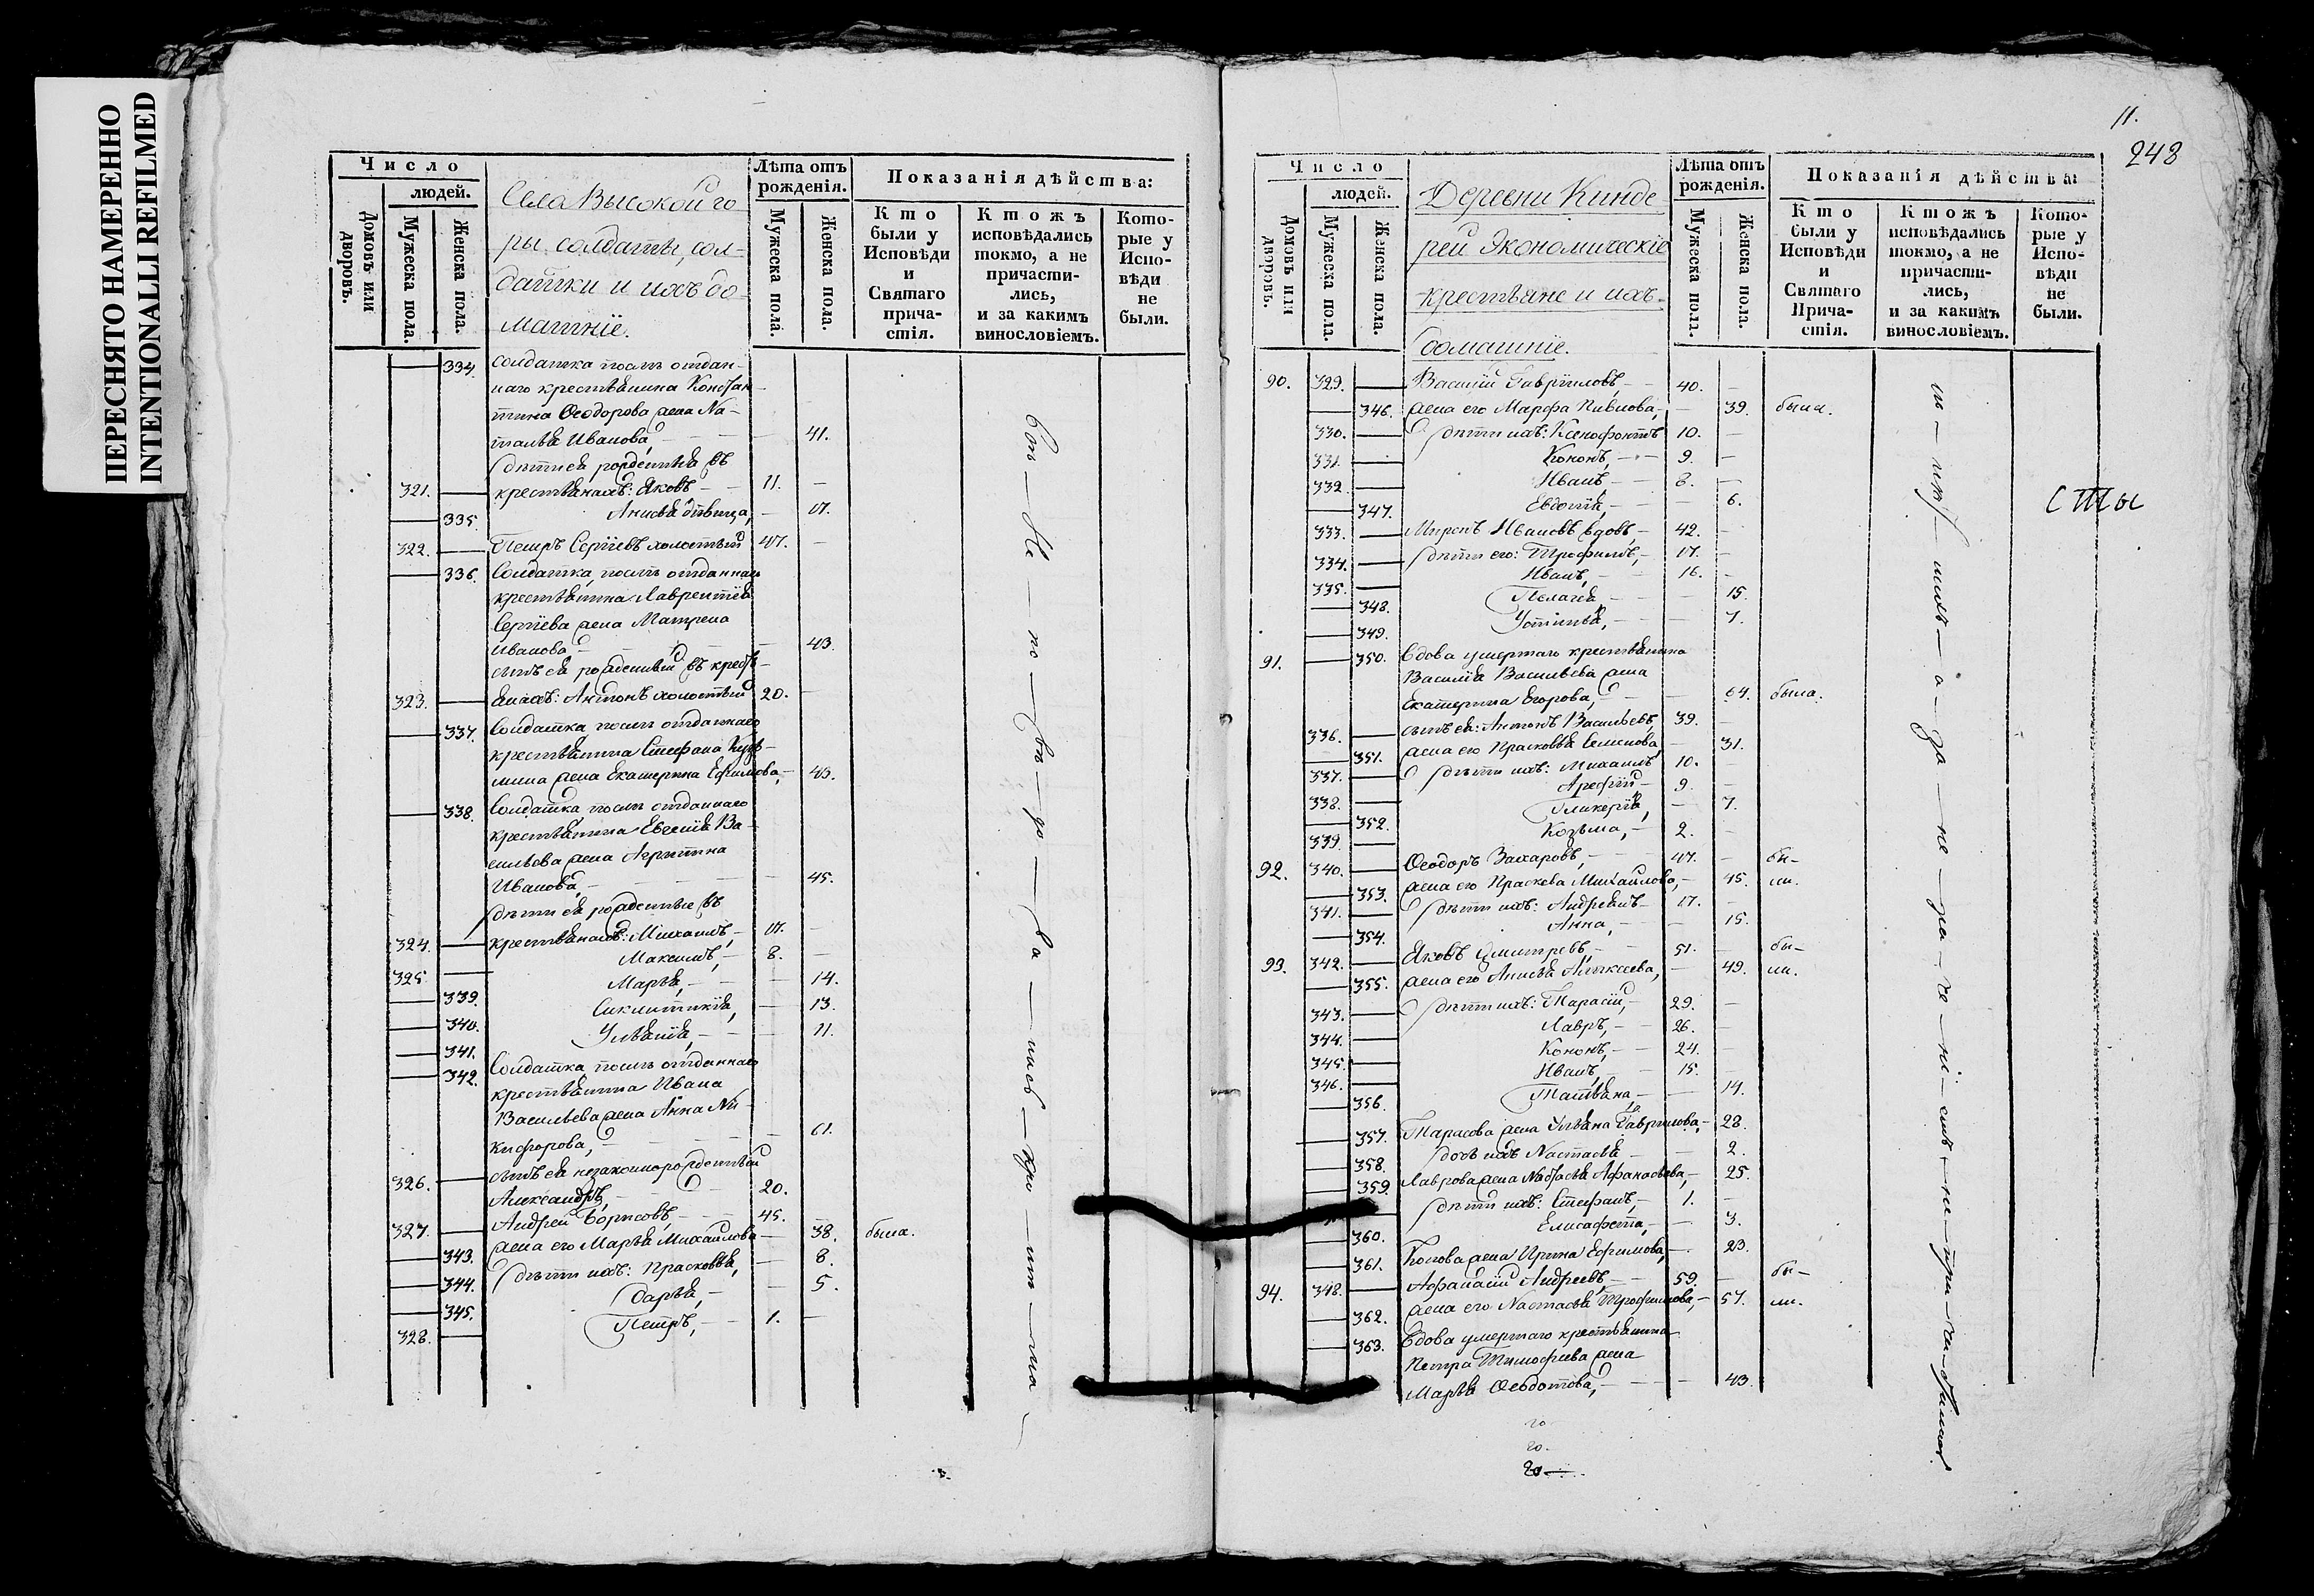 ПЕРЕСНЯТО НАМЕРЕННО
INTENTIONALLI REFILMED
Число
людей.
Домовъ или дворовъ.
Мужеска пола.
Женска пола.
Села Высокой го-
ры солдаты, сол-
датки и ихъ до-
машніе.
Лѣта отъ рожденія.
Мужеска пола.
Женска пола.
Показанія дѣйства:
Кто были у Исповѣди и Святаго прича- стія.
Ктожъ исповѣдались токмо, а не причасти- лись, и за какимъ винословіемъ.
Кото- рые у Испо- вѣди не были.
334. Солдатка послѣ отдан-
наго крестьянина Констан-
тина Ѳеодорова жена На-
талья Иванова, 41.
дѣти ея рожденные въ
321. крестьянахъ: Яковъ 11.
335. Анисья дѣвица, 17.
322. Петръ Сергіевъ холостый 47.
336. Солдатка послѣ отданнаго
крестьянина Лаврентія
Сергіева жена Матрена
Иванова 43.
сынъ ея рожденный въ кресть-
323. янахъ: Антонъ холостый 20.
337. Солдатка послѣ отданнаго
крестьянина Стефана Кузь-
мина жена Екатерина Ефимова, 43.
338. Солдатка послѣ отданнаго
крестьянина Евгенія Ва-
сильева жена Агрипина
Иванова, 45.
дѣти ея рожденные въ
324. крестьянахъ: Михаилъ, 17.
325. Максимъ, 8.
339. Марья, 14.
340. Синклитикія, 13.
341. Ульянія, 11.
342. Солдатка послѣ отданнаго
крестьянина Ивана
Васильева жена Анна Ни-
кифорова, 61.
326. сынъ ея незаконнорожденный
Александръ, 20.
327. Андрей Борисовъ, 45.
343. жена его Марья Михайлова 38. была.
344. дѣти ихъ: Прасковья, 8.
345. Дарья, 5.
328. Петръ, 1.
11.
248
Число
людей.
Домовъ или дворовъ.
Мужеска пола.
Женска пола.
Деревни Кинде
рей экономическіе
крестьяне и ихъ
домашніе.
Лѣта отъ рожденія.
Мужеска пола.
Женска пола.
Показанія дѣйства:
Кто были у Исповѣди и Святаго Прича- стія.
Ктожъ исповѣдались токмо, а не причасти- лись, и за какимъ винословіемъ.
Кото- рые у Испо- вѣди не были.
90. 329. Василій Гавріиловъ, 40.
346. жена его Марфа 39. была.
330. дѣти ихъ: Ксенофонтъ 10.
331. Кононъ, 9.
332. Иванъ 8.
347. Евдокія, 6.
333. Миронъ Ивановъ вдовъ, 42.
334. дѣти его: Трофимъ, 17.
335. Иванъ, 16.
348. Пелагея 15.
349. Устинья, 7.
91. 350. Вдова умершаго крестьянина
Василія Васильева жена
Екатерина Егорова, 64. была.
336. сынъ ея: Антонъ Васильевъ, 39.
351. жена его Прасковья Семенова, 31.
337. дѣти ихъ: Михаилъ 10.
338. Арефій 9.
352. Гликерія, 7.
339. Козьма, 2.
92. 340. Ѳеодоръ Захаровъ, 47. бы-
353. жена его Праскева Михайлова, 45. ли.
341. дѣти ихъ: Андреянъ 17.
354. Анна, 15.
93. 342. Яковъ Дмитревъ, 51. бы-
355. жена его Анисья Алексеева, 49. ли.
343. дѣти ихъ: Тарасій, 29.
344. Лавръ, 26.
345. Кононъ, 24.
346. Иванъ, 15.
356. Татьяна, 14.
357. Тарасова жена Ульяна Гаврилова, 28.
358. дочь ихъ Настасья 2.
359. Лаврова жена Настасья Афанасьева, 25.
дѣти ихъ: Стефанъ, 1.
360. Елисафета, 3.
361. Конова жена Ирина Ефимова, 23.
94. 348. Афанасій Андреевъ, 59. бы-
362. жена его Настасья Трофимова, 57. ли.
363. Вдова умершаго крестьянина
Петра Тимофеева жена
Марья Ѳедотова, 43.